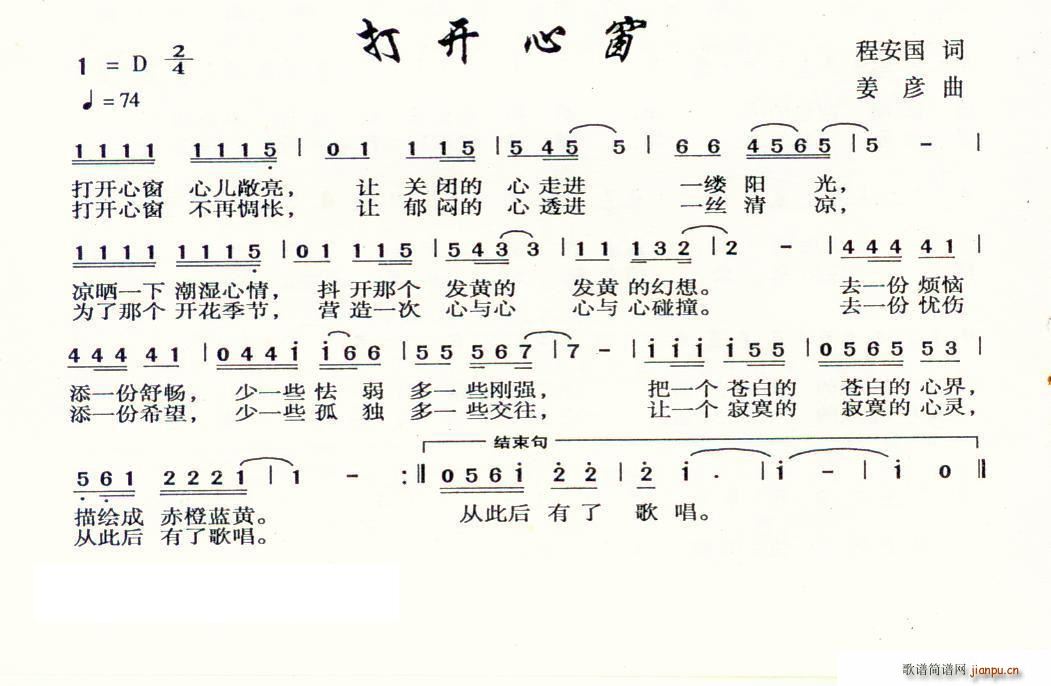 打开心窗
1 = D 2/4
程安国 词
♩=74
姜彦 曲
1111 1115 | 01 115 | 545 5 | 66 4565 | 5 - |
打开心窗 心儿敞亮， 让 关 闭的 心 走进 一缕 阳 光，
打开心窗 不再惆怅， 让 郁 闷的 心 透进 一丝 清 凉，
1111 1115 | 01 115 | 543 3 | 11 132 | 2 - | 444 441 |
凉晒一下 潮湿心情， 抖 开那个 发黄的 发黄 的幻想。 去一份 烦恼
为了那个 开花季节， 营 造一次 心与心 心与 心碰撞。 去一份 忧伤
444 41 | 044i i66 | 55 567 | 7 - | iii i55 | 0565 53 |
添一份舒畅， 少一些 怯 弱 多一 些刚强， 把一个 苍白的 苍白的 心界，
添一份希望， 少一些 孤 独 多一 些交往， 让一个 寂寞的 寂寞的 心灵，
结束句
561 2221 | 1 - :‖ 056i 22 | 2 i . | i - | i 0 ‖
描绘成 赤橙蓝黄。 从此后 有 了 歌 唱。
从此后 有了歌唱。
歌谱简谱网 jianpu.cn